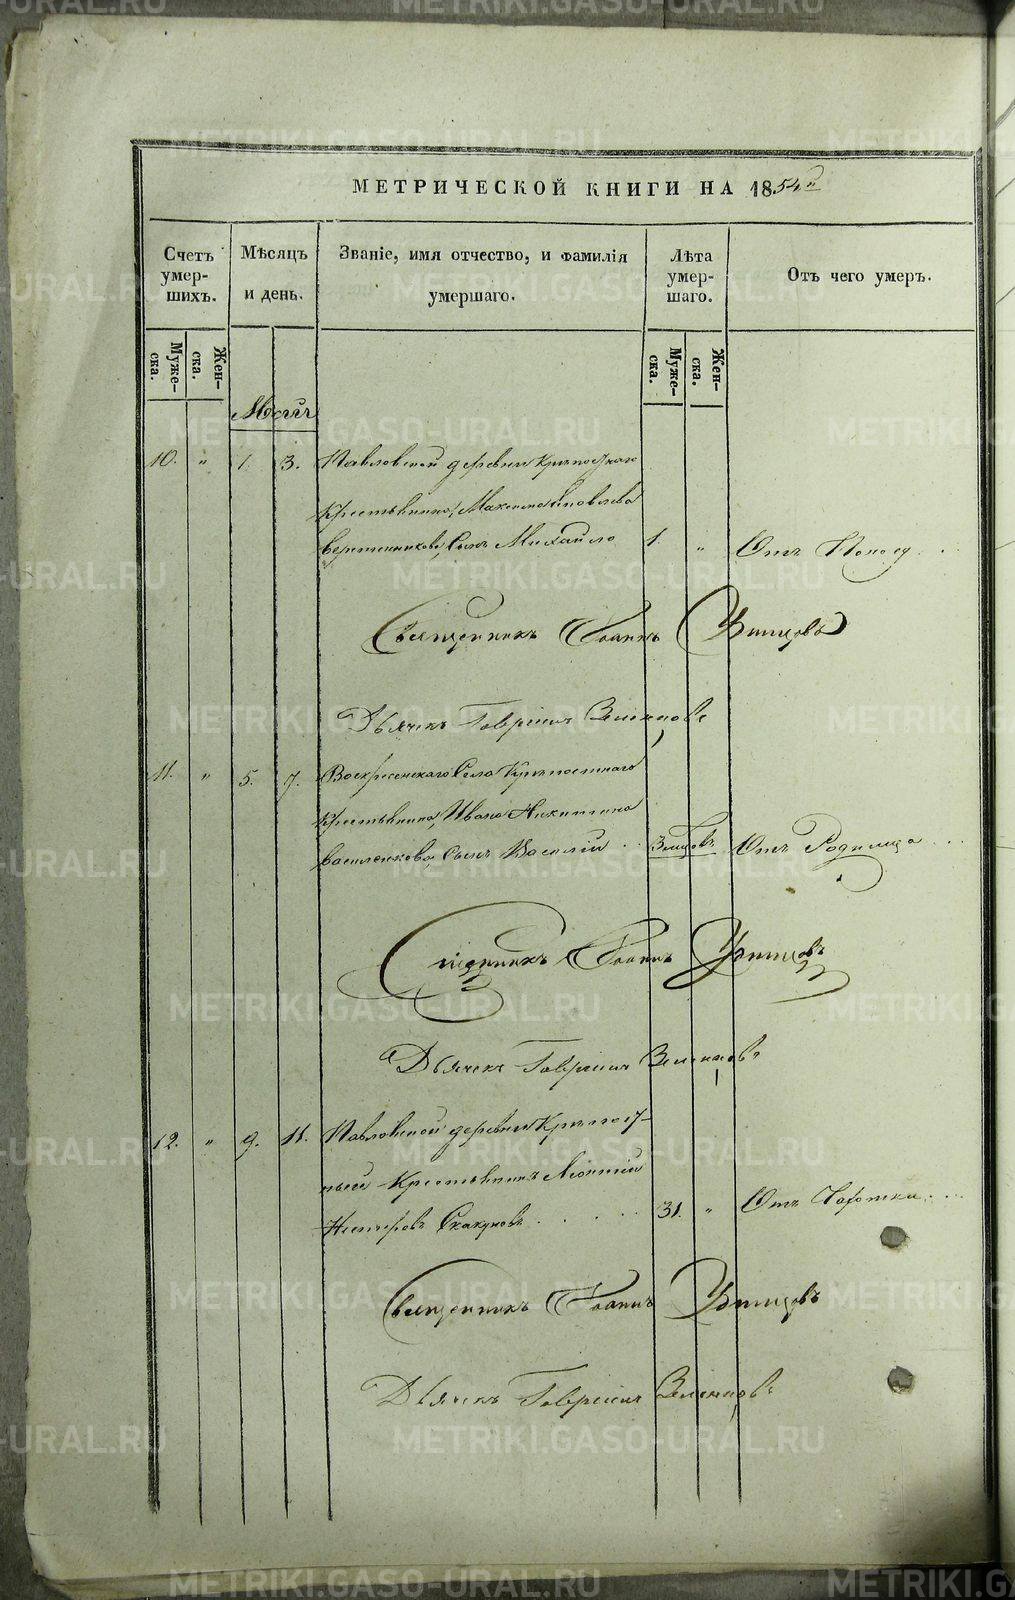 МЕТРИЧЕСКОЙ КНИГИ НА 1854й
Счетъ умер-шихъ.
Мѣсяцъ и день.
Званіе, имя отчество, и фамилія умершаго.
Лѣта умер-шаго.
Отъ чего умеръ.
Муже-ска.
Жен-ска.
Муже-ска.
Жен-ска.
Маій
10. " 1. 3. Павловской деревни Крѣпостнаго
Крестьянина Максима Яковлева
сынъ Михайло 1. " Отъ
Священникъ Іоаннъ
Дьячекъ Гавріилъ
11. " 5. 7. Воскресенскаго Села Крѣпостнаго
Крестьянина Ивана Никитина
Василенкова, сынъ Василій Отъ Родимца
Священникъ Іоаннъ
Дьячекъ Гавріилъ
12. " 9. 11. Павловской деревни Крѣпост-
ный Крестьянинъ Леонтій
Нестеровъ Скакуновъ 31. " Отъ Чахотки
Священникъ Іоаннъ
Дьячекъ Гавріилъ
METRIKI.GASO-URAL.RU